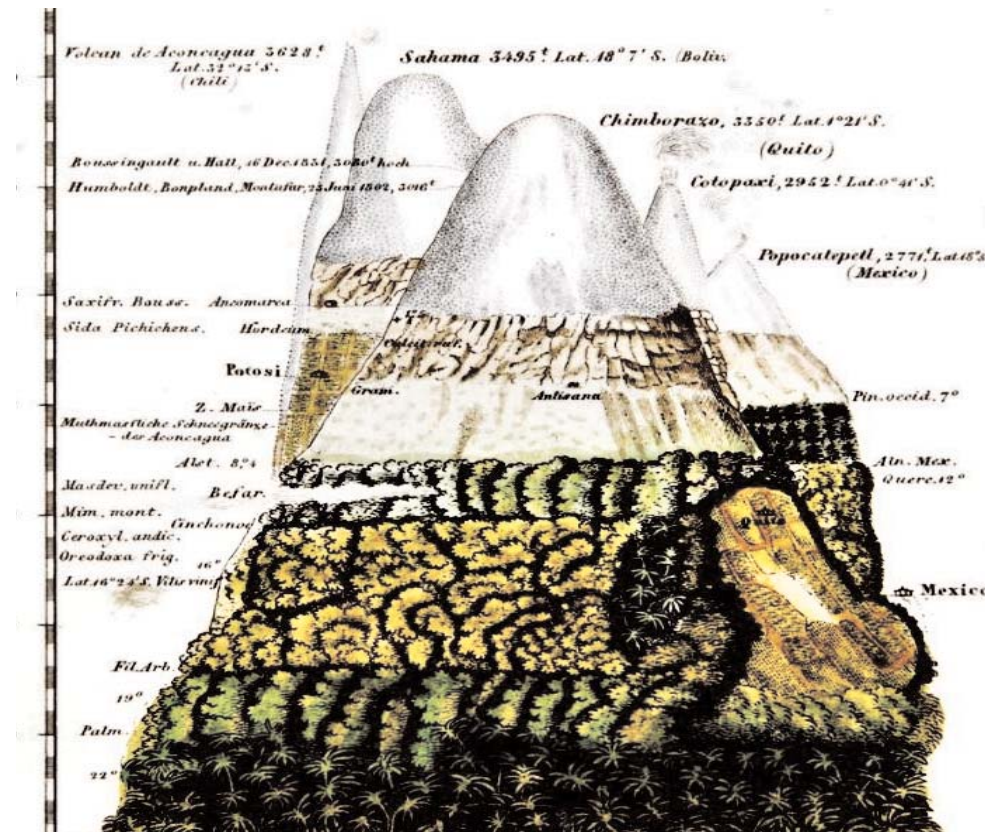 Volcan de Aconcagua 3623.t
Lat. 32° 15' S.
(Chili)
Sahama 3495.t Lat. 18° 7' S. (Boliv.
Chimborazo, 3350.t Lat. 1° 21' S.
(Quito)
Boussingault u. Hall, 16 Dec. 1831, 3080.t hoch
Humboldt, Bonpland, Montufar, 23 Juni 1802, 3016.t
Cotopaxi, 2952.t Lat. 0° 41' S.
Popocatepetl, 2771.t Lat.
(Mexico)
Saxifr. Bouss. Ancomarca
Sida Pichichens. Hordeum
Culcit. ruf.
Potosi
Gram. Antisana
Pin. occid. 7°
Z. Maïs
Muthmassliche Schneegränze
des Aconcagua
Alst. 8°,4
Aln. Mex.
Querc. 12°
Masdev. unifl.
Befar.
Mim. mont.
Cinchonae
Quito
Ceroxyl. andic.
Oreodoxa frig.
16°
Lat. 16° 24' S. Vitis vinif.
Mexico
Fil. Arb.
19°
Palm.
22°